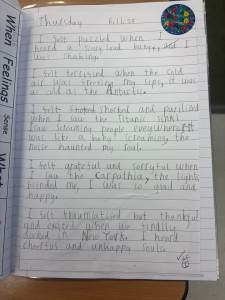 Thursday
I felt puzzled when I
heard a very loud bang, and I
was shaking.
I felt terrified when the cold
air was freezing my lips, it was
as cold as the Antartic.
I felt shocked and
when I saw the Titanic sink!
I saw screaming people everywhere it
was like a baby screaming, the
noise haunted my soul.
I felt grateful and sorryful when
I saw the Carpathia, the lights
blinded me, I was so glad and
happy.
I felt traumatised but thankful
and excited when we finally
docked in New York. I heard
cheerful and unhappy souls.
When
Feelings
Sense